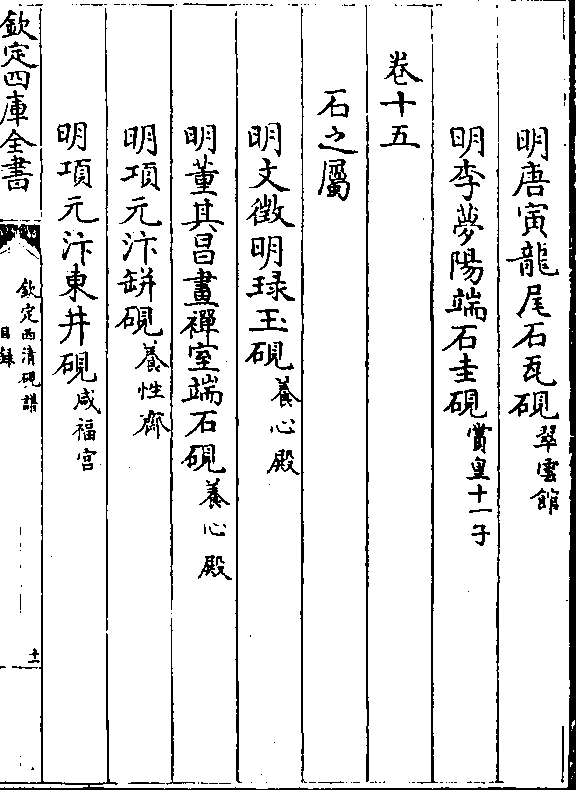 明唐寅龍尾石瓦硯翠雲館
明李夢陽端石圭硯賞皇十一子
卷十五
石之屬
明文徵明琭玉硯養心殿
明董其昌畫禪室端石硯養心殿
明項元汴缾硯養性齋
明項元汴東井硯咸福宮
欽定四庫全書
欽定西清硯譜
目錄
十二